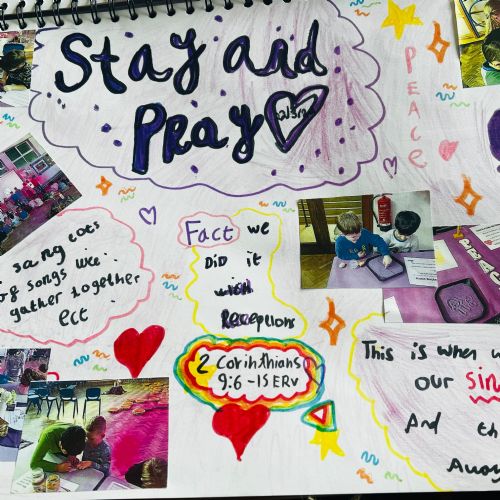 Stay and
Pray
PEACE
sang lots
of songs like
gather together
ect
Fact we
DiD it
with
Receptions
2 Corinthians
9:6-15 ERV
This is when w
our sin
And th